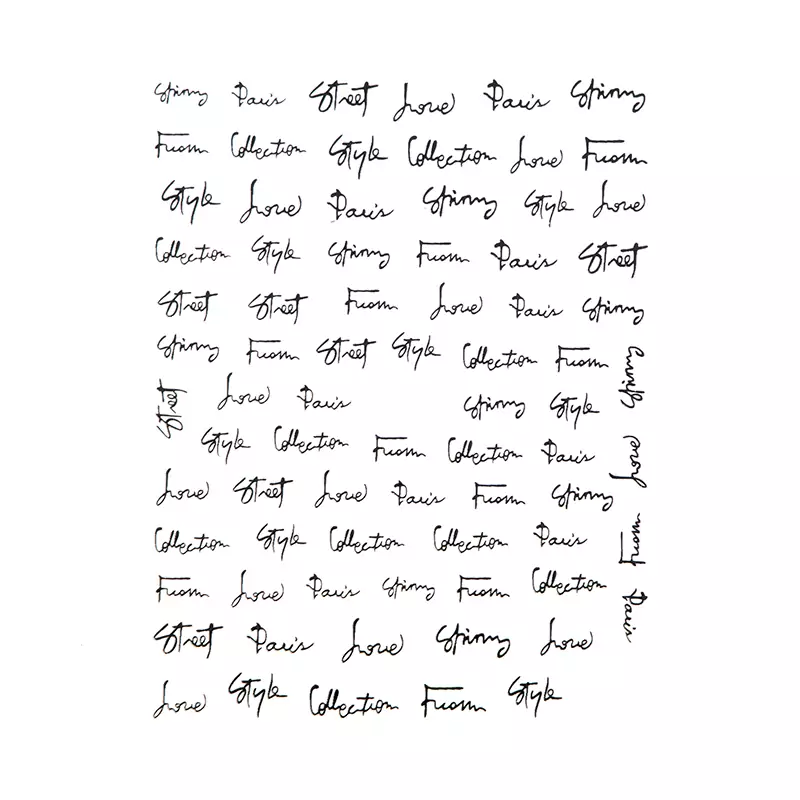 Spring Paris Street Love Paris Spring
From Collection Style Collection Love From
Style Love Paris Spring Style Love
Collection Style Spring From Paris Street
Street Street From Love Paris Spring
Spring From Street Style Collection From
Street
Love Paris Spring Style
Style Collection From Collection Paris
Love Street Love Paris From Spring
Collection Style Collection Collection Paris
From Love Paris Spring From Collection
Street Paris Love Spring Love
Love Style Collection From Style
Spring
Love
From
Paris